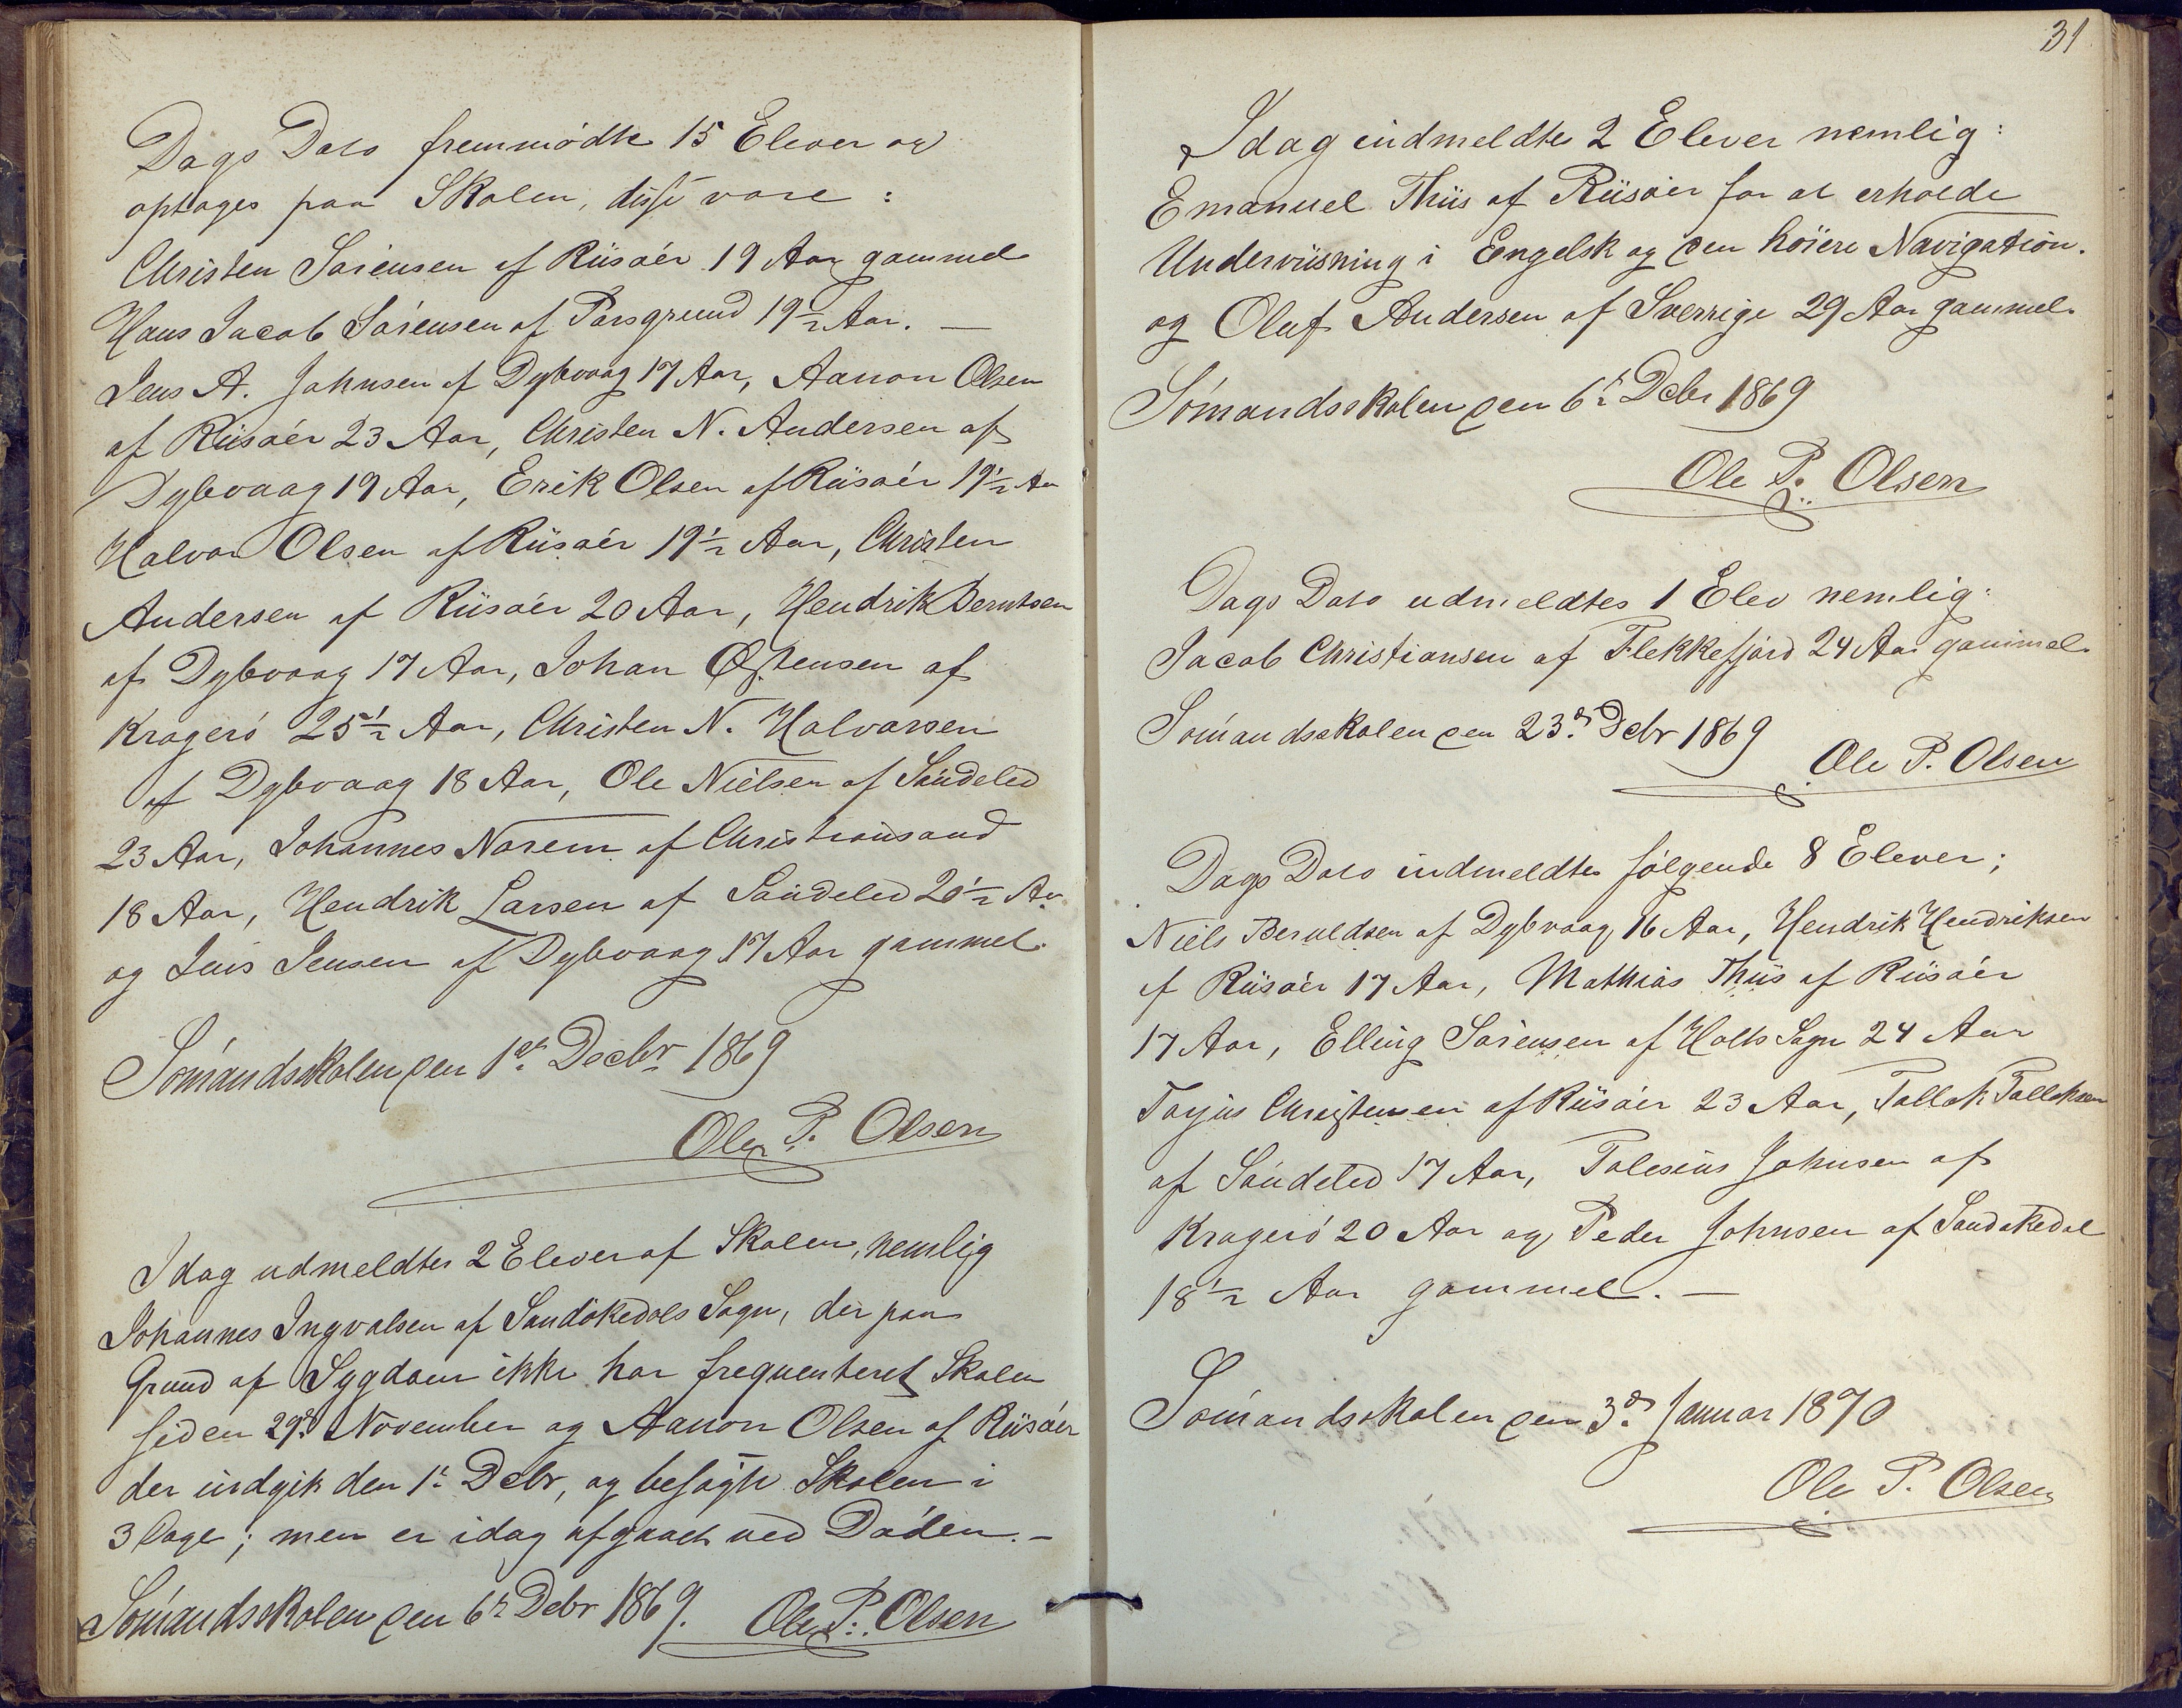 Dags Dato fremmødte 15 Elever og
optages paa Skolen, disse vare :
Christen Sørensen af Riisøer 19 Aar gammel
Hans Jacob Sørensen af Porsgrund 19½ Aar. —
Jens A. Johnsen af Dybvaag 17 Aar, Aanon Olsen
af Riisøer 23 Aar, Christen N. Andersen af
Dybvaag 19 Aar, Erik Olsen af Riisøer 19½ Aar
Halvor Olsen af Riisøer 19½ Aar, Christen
Andersen af Riisøer 20 Aar, Hendrik Berntsen
af Dybvaag 17 Aar, Johan Østensen af
Kragerø 25½ Aar, Christen N. Halvorsen
af Dybvaag 18 Aar, Ole Nielsen af Søndeled
23 Aar, Johannes Norem af Christiansand
18 Aar, Hendrik Larsen af Søndeled 20½ Aar
og Jens Jensen af Dybvaag 17 Aar gammel.
Sömandsskolen den 1ste Decbr 1869
Ole P. Olsen
Idag udmeldtes 2 Elever af Skolen, nemlig
Johannes Ingvalsen af Sandøkedals Sogn, der paa
Grund af Sygdom ikke har frequenteret Skolen
siden 29de November og Aanon Olsen af Riisøer
der indgik den 1ste Debr, og besøgte Skolen i
3 Dage; men er idag afgaaet ved Døden. —
Sömandsskolen den 6te Debr 1869. Ole P. Olsen
31
Idag indmeldtes 2 Elever nemlig:
Emanuel Thiis af Riisøer for at erholde
Underviisning i Eengelsk og den höiere Navigation.
og Oluf Andersen af Sverrige 29 Aar gammel.
Sömandsskolen den 6te Debr 1869
Ole P. Olsen
Dags Dato udmeldtes 1 Elev nemlig:
Jacob Christiansen af Flekkefjord 24 Aar gammel.
Sömandsskolen den 23de Debr 1869
Ole P. Olsen
Dags Dato indmeldtes følgende 8 Elever;
Niels Beruldsen af Dybvaag 16 Aar, Hendrik Hendriksen
af Riisøer 17 Aar, Mathias Thiis af Riisøer
17 Aar, Elling Sørensen af Holts Sogn 24 Aar
Torjus Christensen af Riisøer 23 Aar, Tallak Tallaksen
af Søndeled 17 Aar, Tolesius Johnsen af
Kragerø 20 Aar og Peder Johnsen af Sandøkedal
18½ Aar gammel. —
Sömandsskolen den 3de Januar 1870
Ole P. Olsen